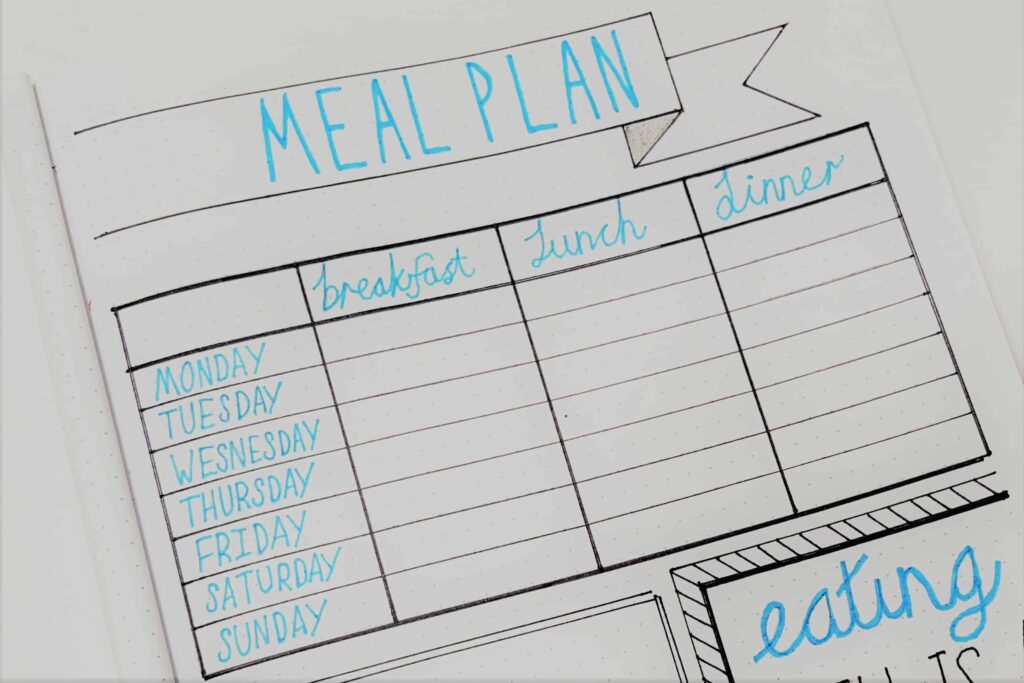 MEAL PLAN
breakfast Lunch Dinner
MONDAY
TUESDAY
WESNESDAY
THURSDAY
FRIDAY
SATURDAY
SUNDAY
eating
IS